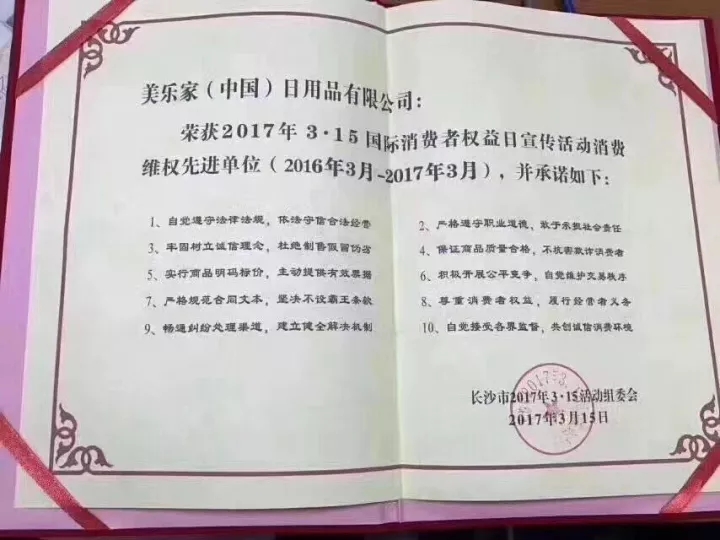 美乐家（中国）日用品有限公司：
荣获2017年3·15国际消费者权益日宣传活动消费
维权先进单位（2016年3月-2017年3月），并承诺如下：
1、自觉遵守法律法规，依法守信合法经营
2、严格遵守职业道德，敢于承担社会责任
3、牢固树立诚信理念，杜绝制售假冒伪劣
4、保证商品质量合格，不坑害欺诈消费者
5、实行商品明码标价，主动提供有效票据
6、积极开展公平竞争，自觉维护交易秩序
7、严格规范合同文本，坚决不设霸王条款
8、尊重消费者权益，履行经营者义务
9、畅通纠纷处理渠道，建立健全解决机制
10、自觉接受各界监督，共创诚信消费环境
长沙市2017年3·15活动组委会
2017年3月15日